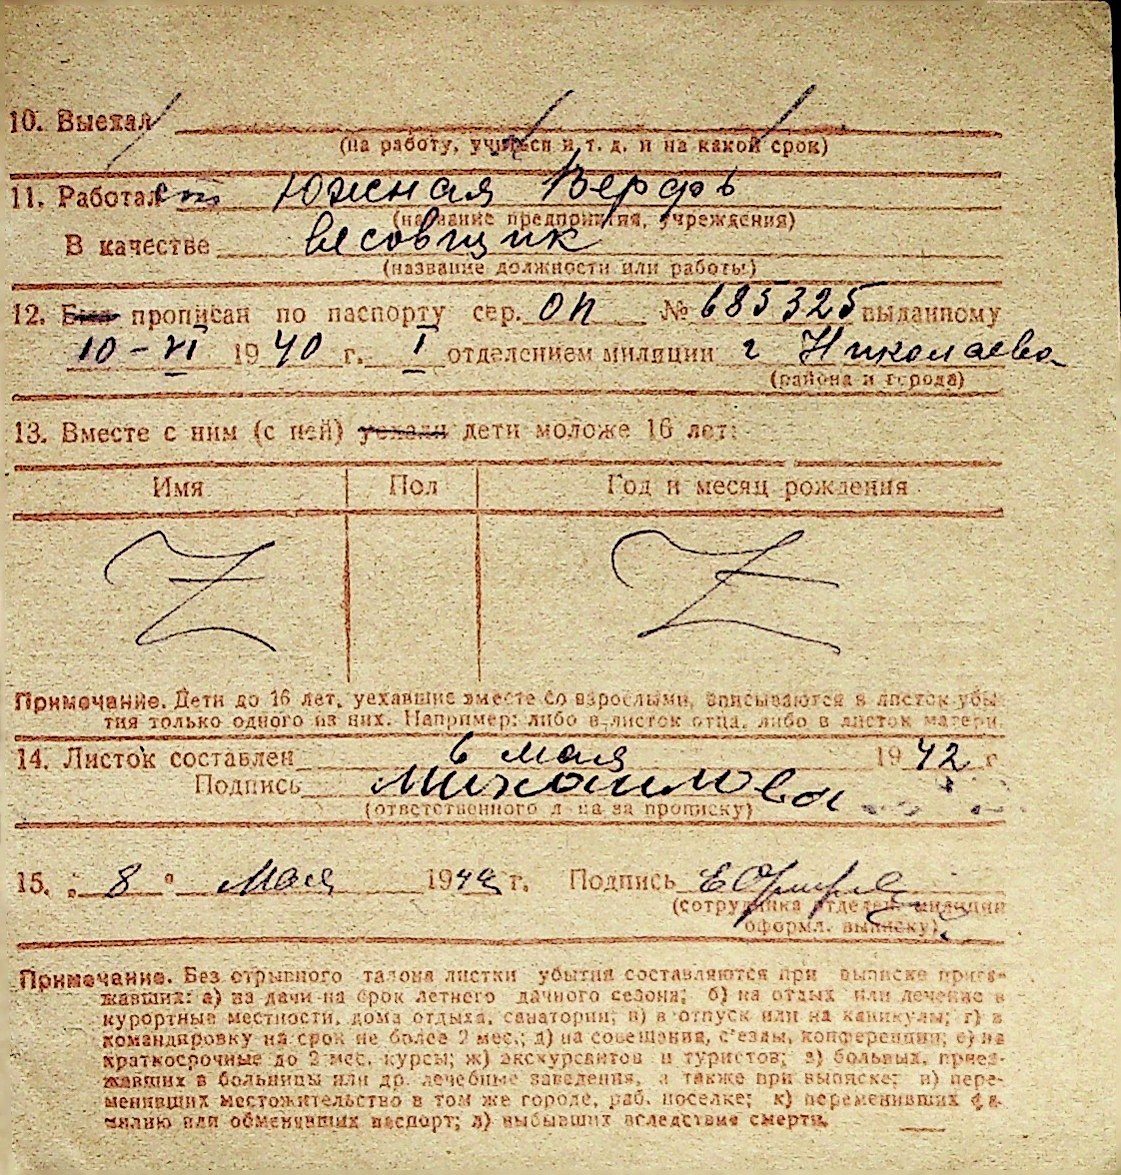 10. Выехал
(на работу, учиться и т. д. и на какой срок)
11. Работает Южная Верфь
(название предприятия, учреждения)
В качестве весовщик
(название должности или работы)
12. Был прописан по паспорту сер. ОП № 685325 выданному
10-VI 1940 г. I отделением милиции г Николаева
(района и города)
13. Вместе с ним (с ней) уехали дети моложе 16 лет:
Имя Пол Год и месяц рождения
Z Z
Примечание. Дети до 16 лет, уехавшие вместе со взрослыми, вписываются в листок убы-
тия только одного из них. Например: либо в листок отца, либо в листок матери.
14. Листок составлен 6 мая 1942 г
Подпись Михаилова
(ответственного л-ца за прописку)
15. „ 8 " Мая 1942 г. Подпись
(сотрудника отделен. милиции
оформл. выписку)
Примечание. Без отрывного талона листки убытия составляются при выписке приез-
жавших: а) на дачи на срок летнего дачного сезона; б) на отдых или лечение в
курортные местности, дома отдыха, санатории; в) в отпуск или на каникулы; г) в
командировку на срок не более 2 мес.; д) на совещания, с'езды, конференции; е) на
краткосрочные до 2 мес. курсы; ж) экскурсантов и туристов; з) больных, приез-
жавших в больницы или др. лечебные заведения, а также при выписке: и) пере-
менивших местожительство в том же городе, раб. поселке; к) переменивших фа-
милию или обменявших паспорт; л) выбывших вследствие смерти.